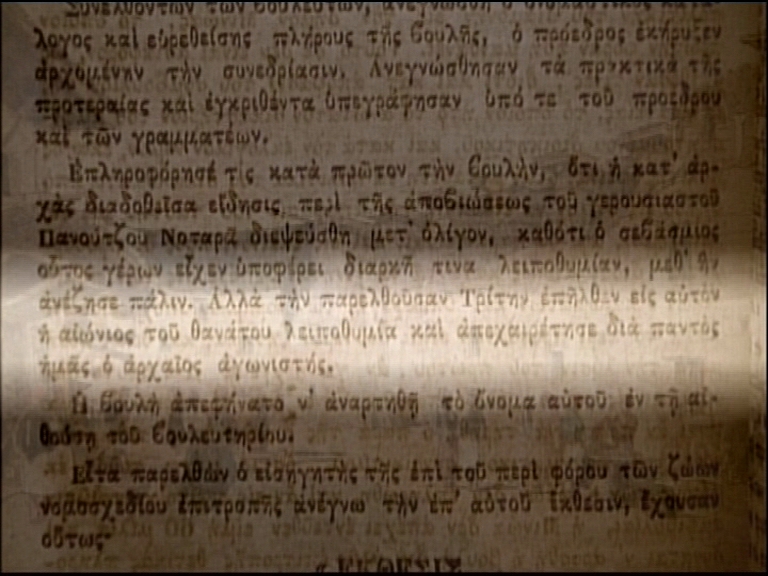 Συνελθόντων τῶν βουλευτῶν, ἀνεγνώσθη ὁ ὀνομαστικὸς κατά-
λογος καὶ εὑρεθείσης πλήρους τῆς βουλῆς, ὁ πρόεδρος ἐκήρυξεν
ἀρχομένην τὴν συνεδρίασιν. Ἀνεγνώσθησαν τὰ πρακτικὰ τῆς
προτεραίας καὶ ἐγκριθέντα ὑπεγράφησαν ὑπό τε τοῦ προέδρου
καὶ τῶν γραμματέων.
Ἐπληροφόρησέ τις κατὰ πρῶτον τὴν βουλὴν, ὅτι ἡ κατ' ἀρ-
χὰς διαδοθεῖσα εἴδησις περὶ τῆς ἀποβιώσεως τοῦ γερουσιαστοῦ
Πανούτζου Νοταρᾶ διεψεύσθη μετ' ὀλίγον, καθότι ὁ σεβάσμιος
οὗτος γέρων εἶχεν ὑποφέρει διαρκῆ τινα λειποθυμίαν, μεθ' ἣν
ἀνέζησε πάλιν. Ἀλλὰ τὴν παρελθοῦσαν Τρίτην ἐπῆλθεν εἰς αὐτὸν
ἡ αἰώνιος τοῦ θανάτου λειποθυμία καὶ ἀπεχαιρέτησε διὰ παντὸς
ἡμᾶς ὁ ἀρχαῖος ἀγωνιστής.
Ἡ βουλὴ ἀπεφήνατο ν' ἀναρτηθῇ τὸ ὄνομα αὐτοῦ ἐν τῇ αἰ-
θούσῃ τοῦ βουλευτηρίου.
Εἶτα παρελθὼν ὁ εἰσηγητὴς τῆς ἐπὶ τοῦ περὶ φόρου τῶν ζώων
νομοσχεδίου ἐπιτροπῆς ἀνέγνω τὴν ἐπ' αὐτοῦ ἔκθεσιν, ἔχουσαν
οὕτως·
« ΕΚΘΕΣΙΣ